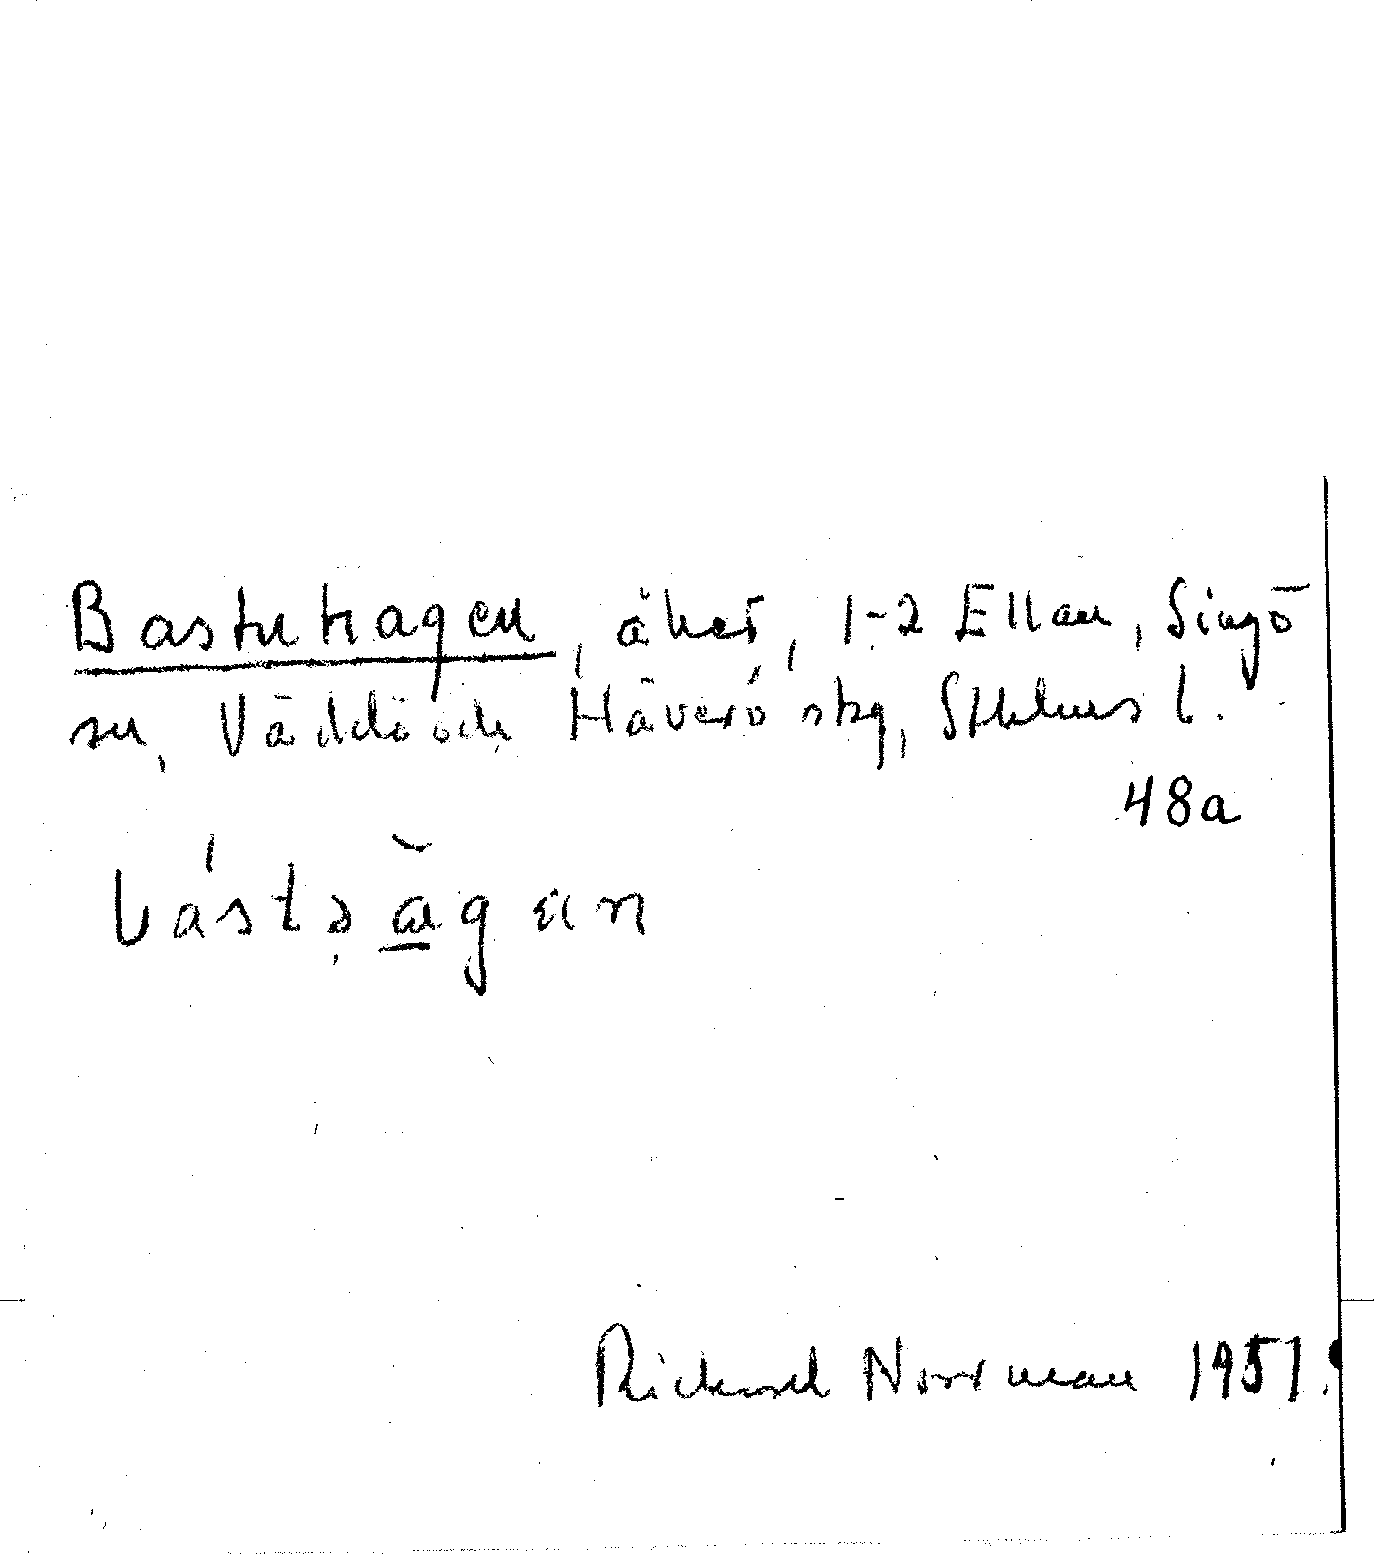 Bastuhagen, åker, 1-2 Ellan, Singö
sn, Väddö och Häverö skg, Sthlms l.
48a
Rickard Norrman 1951.